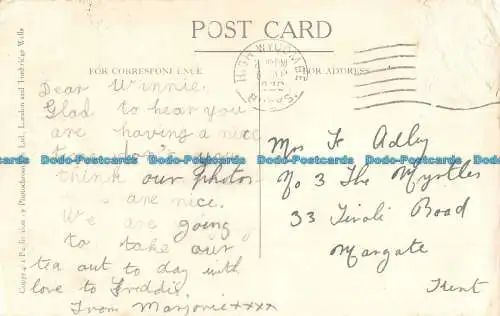 POST CARD
FOR CORRESPONDENCE
FOR ADDRESS
HIGH WYCOMBE
BUCKS.
Dear Winnie.
Glad to hear you
are having a nice
time don't you
think our photos
are nice.
We are going
to take our
tea out to day with
love to Freddie.
From Marjorie xxxx
Mrs F Adley
No 3 The Myrtles
33 Tivoli Road
Margate
Kent
Photochrom Co. Ltd., London and Tunbridge Wells
Dodo-Postcards Dodo-Postcards Dodo-Postcards Dodo-Postcards